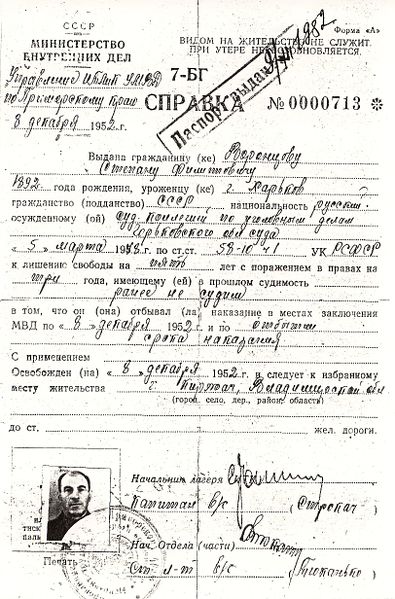 СССР
МИНИСТЕРСТВО
ВНУТРЕННИХ ДЕЛ
Форма «А»
ВИДОМ НА ЖИТЕЛЬСТВО НЕ СЛУЖИТ
ПРИ УТЕРЕ НЕ ВОЗОБНОВЛЯЕТСЯ.
Управление УМВД
по Приморскому краю
8 декабря 1952 г.
7-БГ
Паспорт выдан 1982
СПРАВКА № 0000713 ✻
Выдана гражданину (ке) Воронцову
Степану
1892 года рождения, уроженцу (ке) г. Харьков
гражданство (подданство) СССР, национальность русский
осужденному (ой) Суд. коллегией по уголовным делам
Горьковского обл суда
« 5 » марта 1948 г. по ст.ст. 58-10 ч 1 УК РСФСР
к лишению свободы на пять лет с поражением в правах на
три года, имеющему (ей) в прошлом судимость
ранее не судим
в том, что он (она) отбывал (ла) наказание в местах заключения
МВД по « 8 » декабря 1952 г. и по отбытии
срока наказания
С применением
Освобожден (на) « 8 » декабря 1952 г. и следует к избранному
месту жительства г. Киржач, Владимирской обл
(город, село, дер., район, область)
до ст. жел. дороги.
Начальник лагеря
Капитан в/с
Нач. Отдела (части)
Ст. л-т в/с
Печать